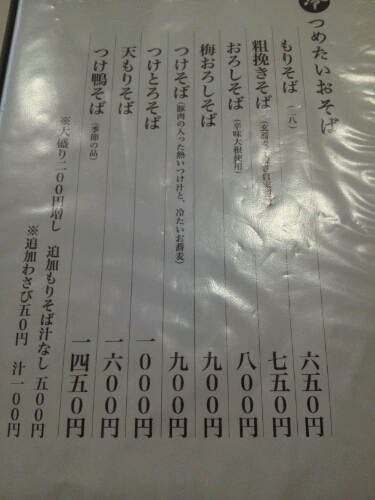 冷 つめたいおそば
もりそば (二八) 六五〇円
粗挽きそば 七五〇円
おろしそば (辛味大根使用) 八〇〇円
梅おろしそば 九〇〇円
つけそば (豚肉の入った熱いつけ汁と、冷たいお蕎麦) 九〇〇円
つけとろそば 一〇〇〇円
天もりそば 一六〇〇円
つけ鴨そば (季節の品) 一四五〇円
※大盛り二〇〇円増し 追加もりそば汁なし 五〇〇円
※追加わさび五〇円 汁一〇〇円